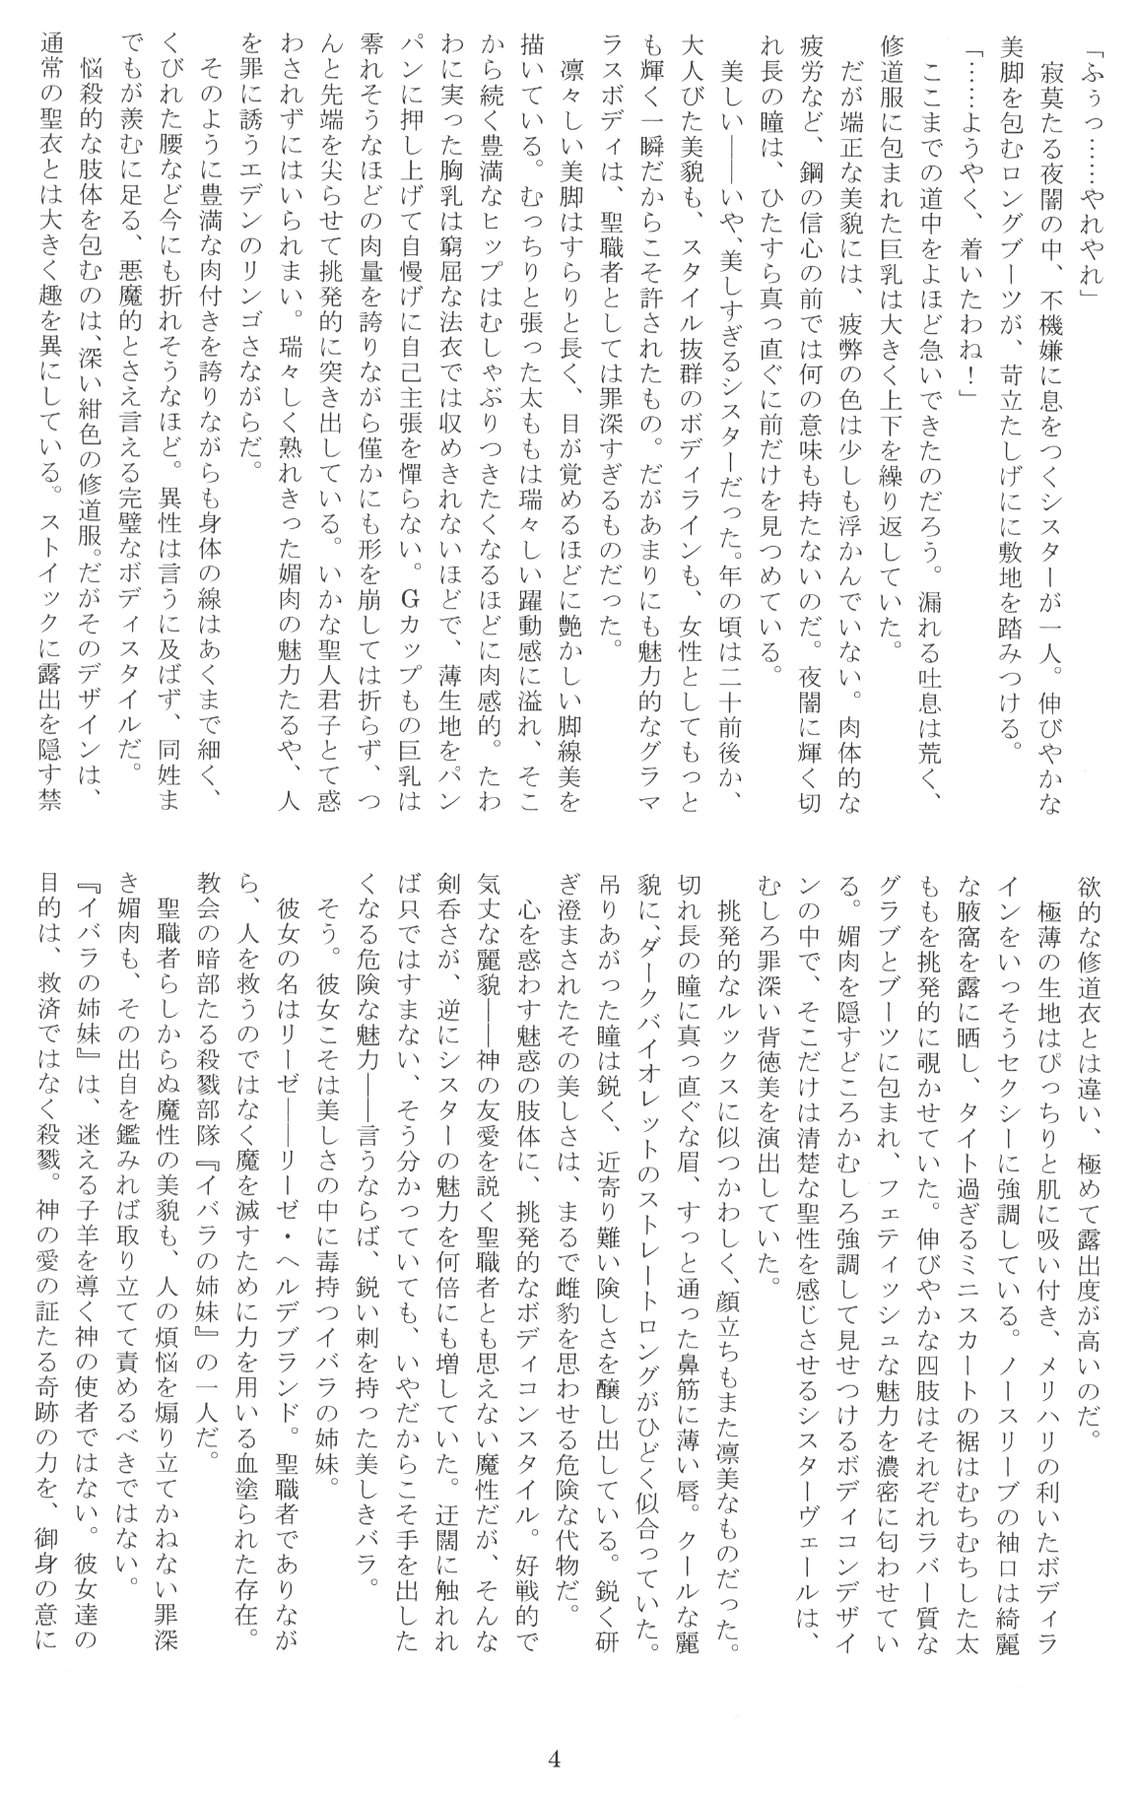 「ふぅっ……やれやれ」
　寂莫たる夜闇の中、不機嫌に息をつくシスターが一人。伸びやかな
美脚を包むロングブーツが、苛立たしげにに敷地を踏みつける。
「……ようやく、着いたわね！」
　ここまでの道中をよほど急いできたのだろう。漏れる吐息は荒く、
修道服に包まれた巨乳は大きく上下を繰り返していた。
　だが端正な美貌には、疲弊の色は少しも浮かんでいない。肉体的な
疲労など、鋼の信心の前では何の意味も持たないのだ。夜闇に輝く切
れ長の瞳は、ひたすら真っ直ぐに前だけを見つめている。
　美しい――いや、美しすぎるシスターだった。年の頃は二十前後か、
大人びた美貌も、スタイル抜群のボディラインも、女性としてもっと
も輝く一瞬だからこそ許されたもの。だがあまりにも魅力的なグラマ
ラスボディは、聖職者としては罪深すぎるものだった。
　凛々しい美脚はすらりと長く、目が覚めるほどに艶かしい脚線美を
描いている。むっちりと張った太ももは瑞々しい躍動感に溢れ、そこ
から続く豊満なヒップはむしゃぶりつきたくなるほどに肉感的。たわ
わに実った胸乳は窮屈な法衣では収めきれないほどで、薄生地をパン
パンに押し上げて自慢げに自己主張を憚らない。Gカップもの巨乳は
零れそうなほどの肉量を誇りながら僅かにも形を崩しては折らず、つ
んと先端を尖らせて挑発的に突き出している。いかな聖人君子とて惑
わされずにはいられまい。瑞々しく熟れきった媚肉の魅力たるや、人
を罪に誘うエデンのリンゴさながらだ。
　そのように豊満な肉付きを誇りながらも身体の線はあくまで細く、
くびれた腰など今にも折れそうなほど。異性は言うに及ばず、同姓ま
でもが羨むに足る、悪魔的とさえ言える完璧なボディスタイルだ。
　悩殺的な肢体を包むのは、深い紺色の修道服。だがそのデザインは、
通常の聖衣とは大きく趣を異にしている。ストイックに露出を隠す禁
欲的な修道衣とは違い、極めて露出度が高いのだ。
　極薄の生地はぴっちりと肌に吸い付き、メリハリの利いたボディラ
インをいっそうセクシーに強調している。ノースリーブの袖口は綺麗
な腋窩を露に晒し、タイト過ぎるミニスカートの裾はむちむちした太
ももを挑発的に覗かせていた。伸びやかな四肢はそれぞれラバー質な
グラブとブーツに包まれ、フェティッシュな魅力を濃密に匂わせてい
る。媚肉を隠すどころかむしろ強調して見せつけるボディコンデザイ
ンの中で、そこだけは清楚な聖性を感じさせるシスターヴェールは、
むしろ罪深い背徳美を演出していた。
　挑発的なルックスに似つかわしく、顔立ちもまた凛美なものだった。
切れ長の瞳に真っ直ぐな眉、すっと通った鼻筋に薄い唇。クールな麗
貌に、ダークバイオレットのストレートロングがひどく似合っていた。
吊りあがった瞳は鋭く、近寄り難い険しさを醸し出している。鋭く研
ぎ澄まされたその美しさは、まるで雌豹を思わせる危険な代物だ。
　心を惑わす魅惑の肢体に、挑発的なボディコンスタイル。好戦的で
気丈な麗貌――神の友愛を説く聖職者とも思えない魔性だが、そんな
剣呑さが、逆にシスターの魅力を何倍にも増していた。迂闊に触れれ
ば只ではすまない、そう分かっていても、いやだからこそ手を出した
くなる危険な魅力――言うならば、鋭い刺を持った美しきバラ。
　そう。彼女こそは美しさの中に毒持つイバラの姉妹。
　彼女の名はリーゼ――リーゼ・ヘルデブランド。聖職者でありなが
ら、人を救うのではなく魔を滅すために力を用いる血塗られた存在。
教会の暗部たる殺戮部隊『イバラの姉妹』の一人だ。
　聖職者らしからぬ魔性の美貌も、人の煩悩を煽り立てかねない罪深
き媚肉も、その出自を鑑みれば取り立てて責めるべきではない。
『イバラの姉妹』は、迷える子羊を導く神の使者ではない。彼女達の
目的は、救済ではなく殺戮。神の愛の証たる奇跡の力を、御身の意に
4